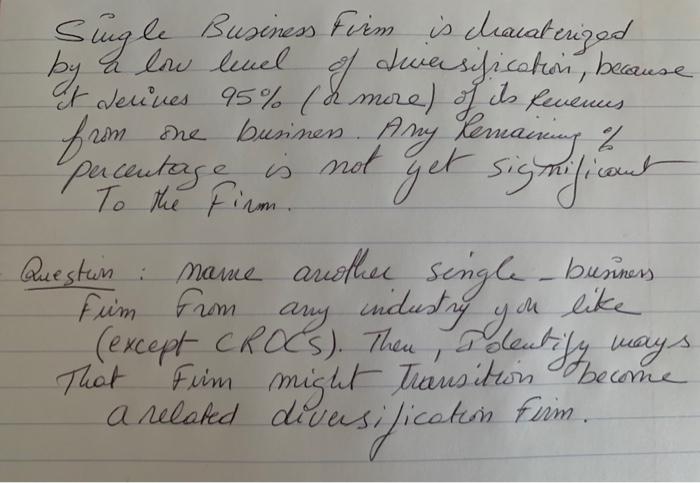 Single Business Firm is characterized
by a low level of diversification, because
it derives 95% (or more) of its Revenues
from one business. Any Remaining %
percentage is not yet significant
To the Firm.
Question : Name another single-business
Firm From any industry you like
(except CROCs). Then, Identify ways
That Firm might Transition become
a related diversification Firm.